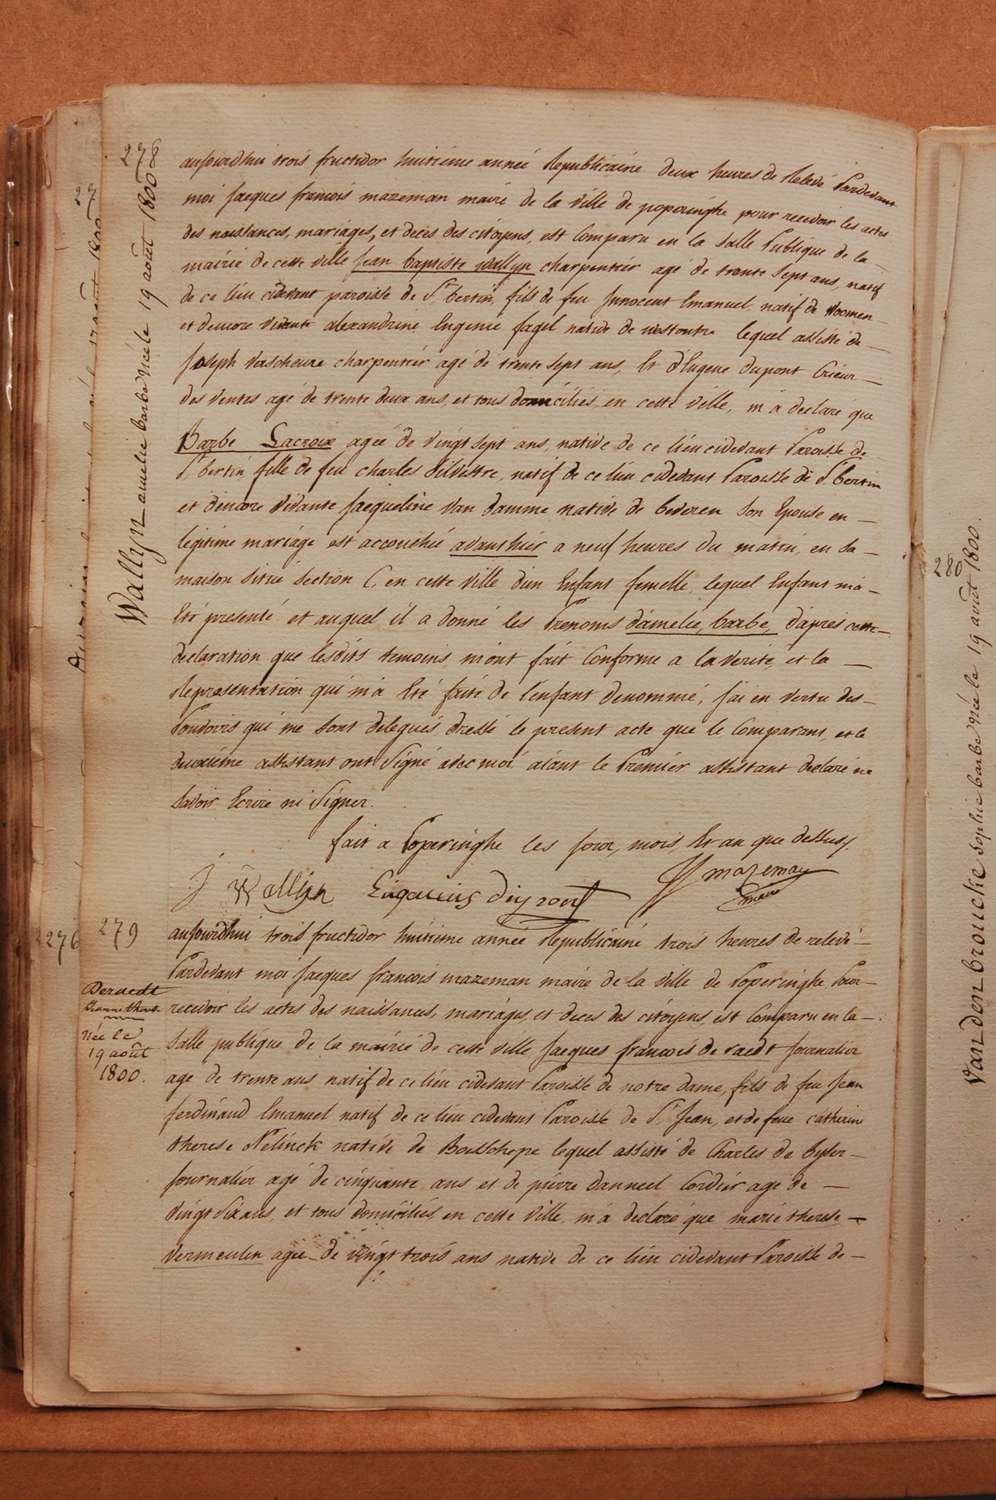 278
Wallyn amelie barbe née le 19 août 1800
aujourdhui trois fructidor huitième année Republicaine deux heures de Relevé Pardevant
moi Jacques francois mazeman maire de la ville de poperinghe pour recevoir les actes
des naissances, mariages, et deces des citoyens, est Comparu en la Salle Publique de la
mairie de cette ville Jean baptiste wallyn charpentier agé de trente Sept ans, natif
de ce lieu cidevant paroisse de St bertin, fils de feu Innocent Emanuel natif de
et dencore vivante alexandrine Eugenie fagel native de westoutre lequel assisté de
Joseph charpentier agé de trente sept ans, Et dEugene dupont Crieur
des ventes agé de trente deux ans, et tous domiciliés en cette ville, m a declaré que
Barbe Lacroix agée de vingt sept ans, native de ce lieu cidevant Paroisse de
St bertin fille de feu charles Silvestre, natif de ce lieu cidevant Paroisse de St bertin
et dencore vivante Jacqueline Van damme native de beveren Son Epouse en
legitime mariage est accouchée avanthier a neuf heures du matin, en sa
maison située Section C en cette ville dun Enfant femelle, lequel Enfant ma
Eté presenté et auquel il a donné les Prenoms damelie, barbe, dapres cette
declaration que lesdits temoins mont fait Conforme a la verité et la
Representation qui ma Eté faite de lenfant denommé, Jai en vertu des
Pouvoirs qui me Sont delegués dressé le present acte que le Comparant et le
deuxième assistant ont Signé avec moi aiant le Premier assistant declaré ne
savoir Ecrire ni Signer.
fait a Poperinghe les Jour, mois Et an que dessus.
J Wallyn Eugenius dupont J f mazeman
maire
279
276
Deraedt
née le
19 août
1800.
aujourdhui trois fructidor huitième année Republicaine trois heures de relevé
Pardevant moi Jacques francois mazeman maire de la ville de Poperinghe Pour
recevoir les actes des naissances, mariages, et deces des citoyens, est Comparu en la
Salle publique de la mairie de cette ville Jacques francois de raedt Journalier
age de trente ans natif de ce lieu cidevant Paroisse de notre dame, fils de feu Jean
ferdinaud Emanuel natif de ce lieu cidevant Paroisse de St Jean, et de feue catherine
therese Nelinck native de Boesschepe lequel assisté de Charles de
Journalier agé de cinquante ans et de pierre danneel Cordier agé de
vingt Six ans, et tous domiciliés en cette ville, m a declaré que marie therese
Vermeulen agee de vingt trois ans native de ce lieu cidevant Paroisse de
280
Vanden broucke Sophie barbe née le 19 août 1800.